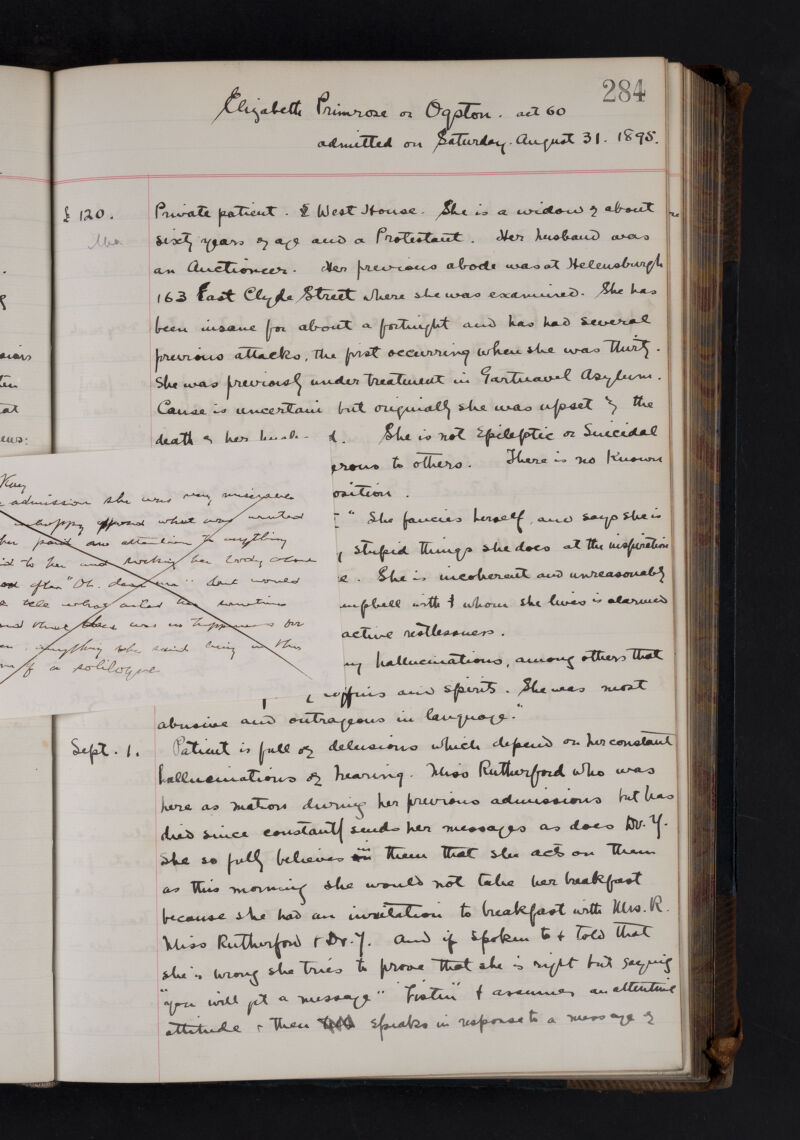 284
Elizabeth Primrose or Ogston. aet 60
admitted on Saturday. August 31. 1895.
£ 120.
Private patient. £ West House. She is a widow of about
sixty years of age and a Protestant. Her husband was
an Auctioneer. Her previous abode was at Helensburgh
163 East Clyde Street where she was examined. She has
been insane for about a fortnight and has had several
previous attacks, the first occurring when she was thirty.
She was previously under treatment in Gartnavel Asylum.
Cause is uncertain but originally she was upset by the
death of her husb d. She is not Epileptic or Suicidal
erous to others. There is no known
osition.
" She fancies herself, and says she is
stupid things she does at the inspiration
e. She is incoherent and unreasonably
mpbell with whom she lives is alarmed
active restlessness.
ny hallucinations, among others that
coffins and spirits. She was most
abusive and outrageous in language."
Kay
admission she was very miserable
unhappy what was wanted
her paid no attention to anything
id to her and rocking her body
often "Oh. dear me" but would
tell what ailed her sometimes
nd that there was no happiness for
anything she said being in the
of a soliloquy
Sept. 1.
Patient is full of delusions which depend on her constant
hallucinations of hearing. Miss Rutherford who was
here as matron during her previous admissions but has
died since constantly sends her messages as does Dr. Y.
She so fully believes in them that she acts on them
as this morning she would not take her breakfast
because she had an invitation to breakfast with Mrs. R.
Miss Rutherford + Dr. Y. And if spoken to + told that
she is wrong she tries to prove that she is right but saying
"you will get a message" "Listen" + assumes an attentive
attitude + then speaks in response to a message of